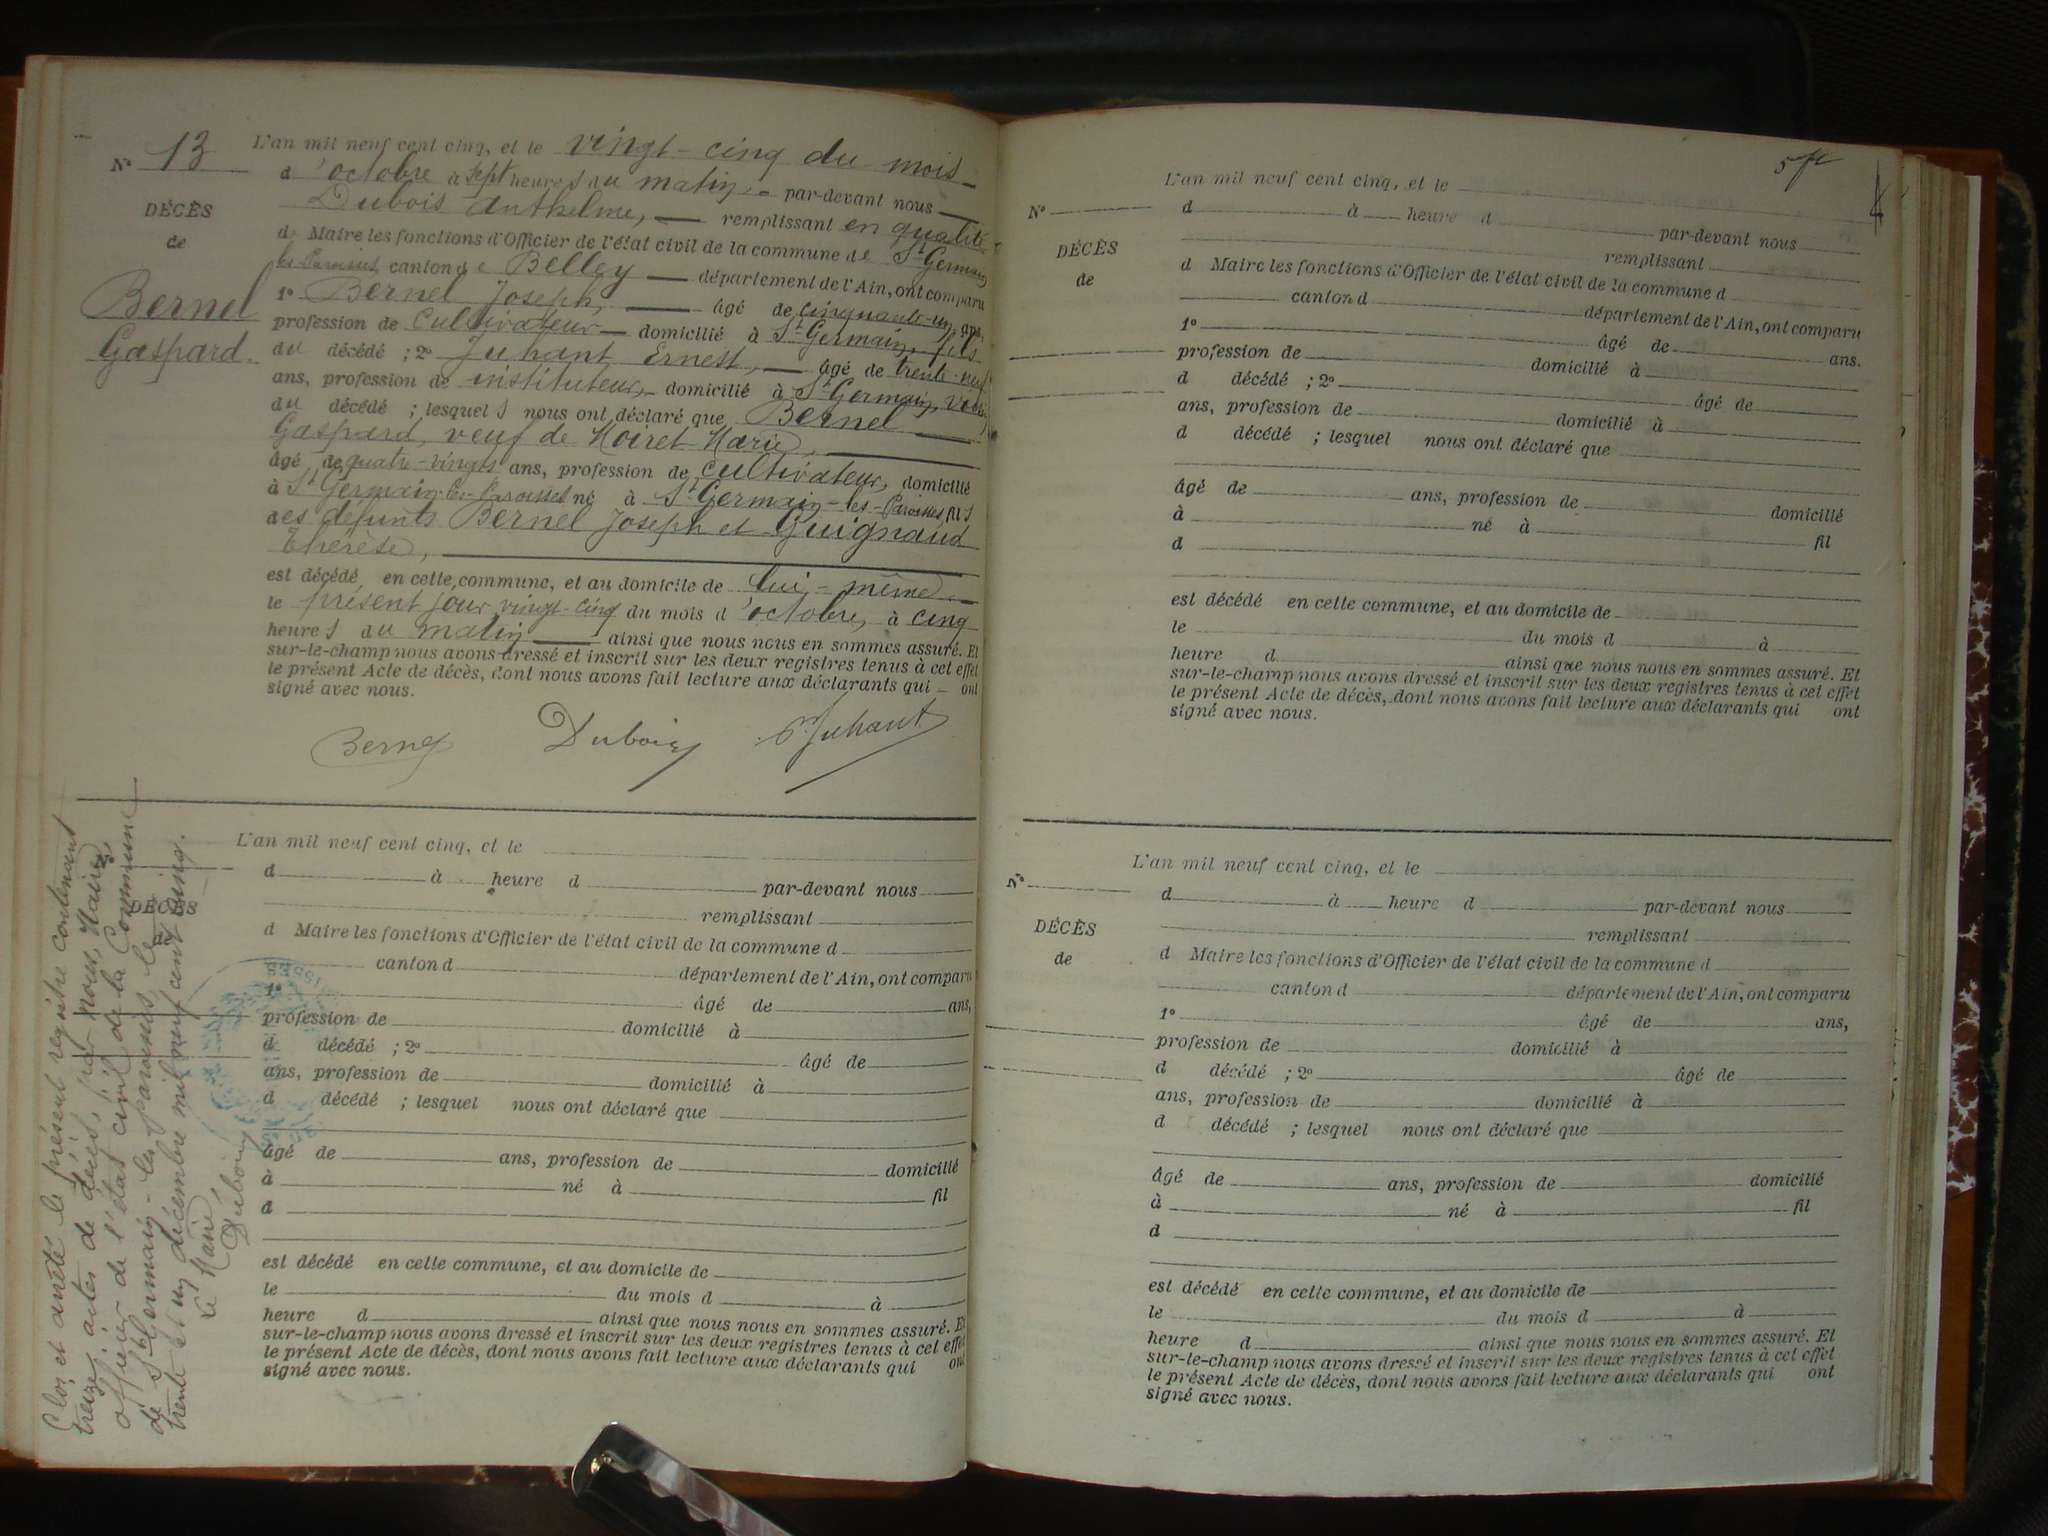 Nº 13
DÉCÈS
de
Bernel
Gaspard.
L'an mil neuf cent cinq, et le vingt-cinq du mois
d'octobre à sept heures du matin, par-devant nous
Dubois Anthelme, remplissant en qualité
de Maire les fonctions d'Officier de l'état civil de la commune de St Germain
les-Paroisses, canton de Belley département de l'Ain, ont comparu
1º Bernel Joseph, âgé de cinquante-un ans,
profession de cultivateur domicilié à St Germain, fils
du décédé ; 2º Juhant Ernest, âgé de trente-neuf
ans, profession de instituteur, domicilié à St Germain, voisin
du décédé ; lesquels nous ont déclaré que Bernel
Gaspard, veuf de Moiret Marie,
âgé de quatre-vingts ans, profession de cultivateur, domicilié
à St Germain-les-Paroisses né à St Germain-les-Paroisses fils
des défunts Bernel Joseph et Guignard
Thérèse,
est décédé en cette commune, et au domicile de lui-même
le présent jour vingt-cinq du mois d'octobre, à cinq
heures du matin ainsi que nous nous en sommes assuré. Et
sur-le-champ nous avons dressé et inscrit sur les deux registres tenus à cet effet
le présent Acte de décès, dont nous avons fait lecture aux déclarants qui ont
signé avec nous.
Bernel Dubois E. Juhant
Clos et arrêté le présent registre contenant
treize actes de décès, par nous, Maire,
officier de l'état civil de la Commune
de St Germain-les-paroisses, le
trente et un décembre mil neuf cent cinq.
Le Maire
Dubois
DÉCÈS
de
L'an mil neuf cent cinq, et le
d à heure d par-devant nous
remplissant
d Maire les fonctions d'Officier de l'état civil de la commune d
canton d département de l'Ain, ont comparu
1º âgé de ans,
profession de domicilié à
d décédé ; 2º âgé de
ans, profession de domicilié à
d décédé ; lesquel nous ont déclaré que
âgé de ans, profession de domicilié
à né à fil
d
est décédé en cette commune, et au domicile de
le du mois d à
heure d ainsi que nous nous en sommes assuré. Et
sur-le-champ nous avons dressé et inscrit sur les deux registres tenus à cet effet
le présent Acte de décès, dont nous avons fait lecture aux déclarants qui ont
signé avec nous.
Nº
DÉCÈS
de
L'an mil neuf cent cinq, et le
d à heure d par-devant nous
remplissant
d Maire les fonctions d'Officier de l'état civil de la commune d
canton d département de l'Ain, ont comparu
1º âgé de ans.
profession de domicilié à
d décédé ; 2º âgé de
ans, profession de domicilié à
d décédé ; lesquel nous ont déclaré que
âgé de ans, profession de domicilié
à né à fil
d
est décédé en cette commune, et au domicile de
le du mois d à
heure d ainsi que nous nous en sommes assuré. Et
sur-le-champ nous avons dressé et inscrit sur les deux registres tenus à cet effet
le présent Acte de décès, dont nous avons fait lecture aux déclarants qui ont
signé avec nous.
Nº
DÉCÈS
de
L'an mil neuf cent cinq, et le
d à heure d par-devant nous
remplissant
d Maire les fonctions d'Officier de l'état civil de la commune d
canton d département de l'Ain, ont comparu
1º âgé de ans,
profession de domicilié à
d décédé ; 2º âgé de
ans, profession de domicilié à
d décédé ; lesquel nous ont déclaré que
âgé de ans, profession de domicilié
à né à fil
d
est décédé en cette commune, et au domicile de
le du mois d à
heure d ainsi que nous nous en sommes assuré. Et
sur-le-champ nous avons dressé et inscrit sur les deux registres tenus à cet effet
le présent Acte de décès, dont nous avons fait lecture aux déclarants qui ont
signé avec nous.